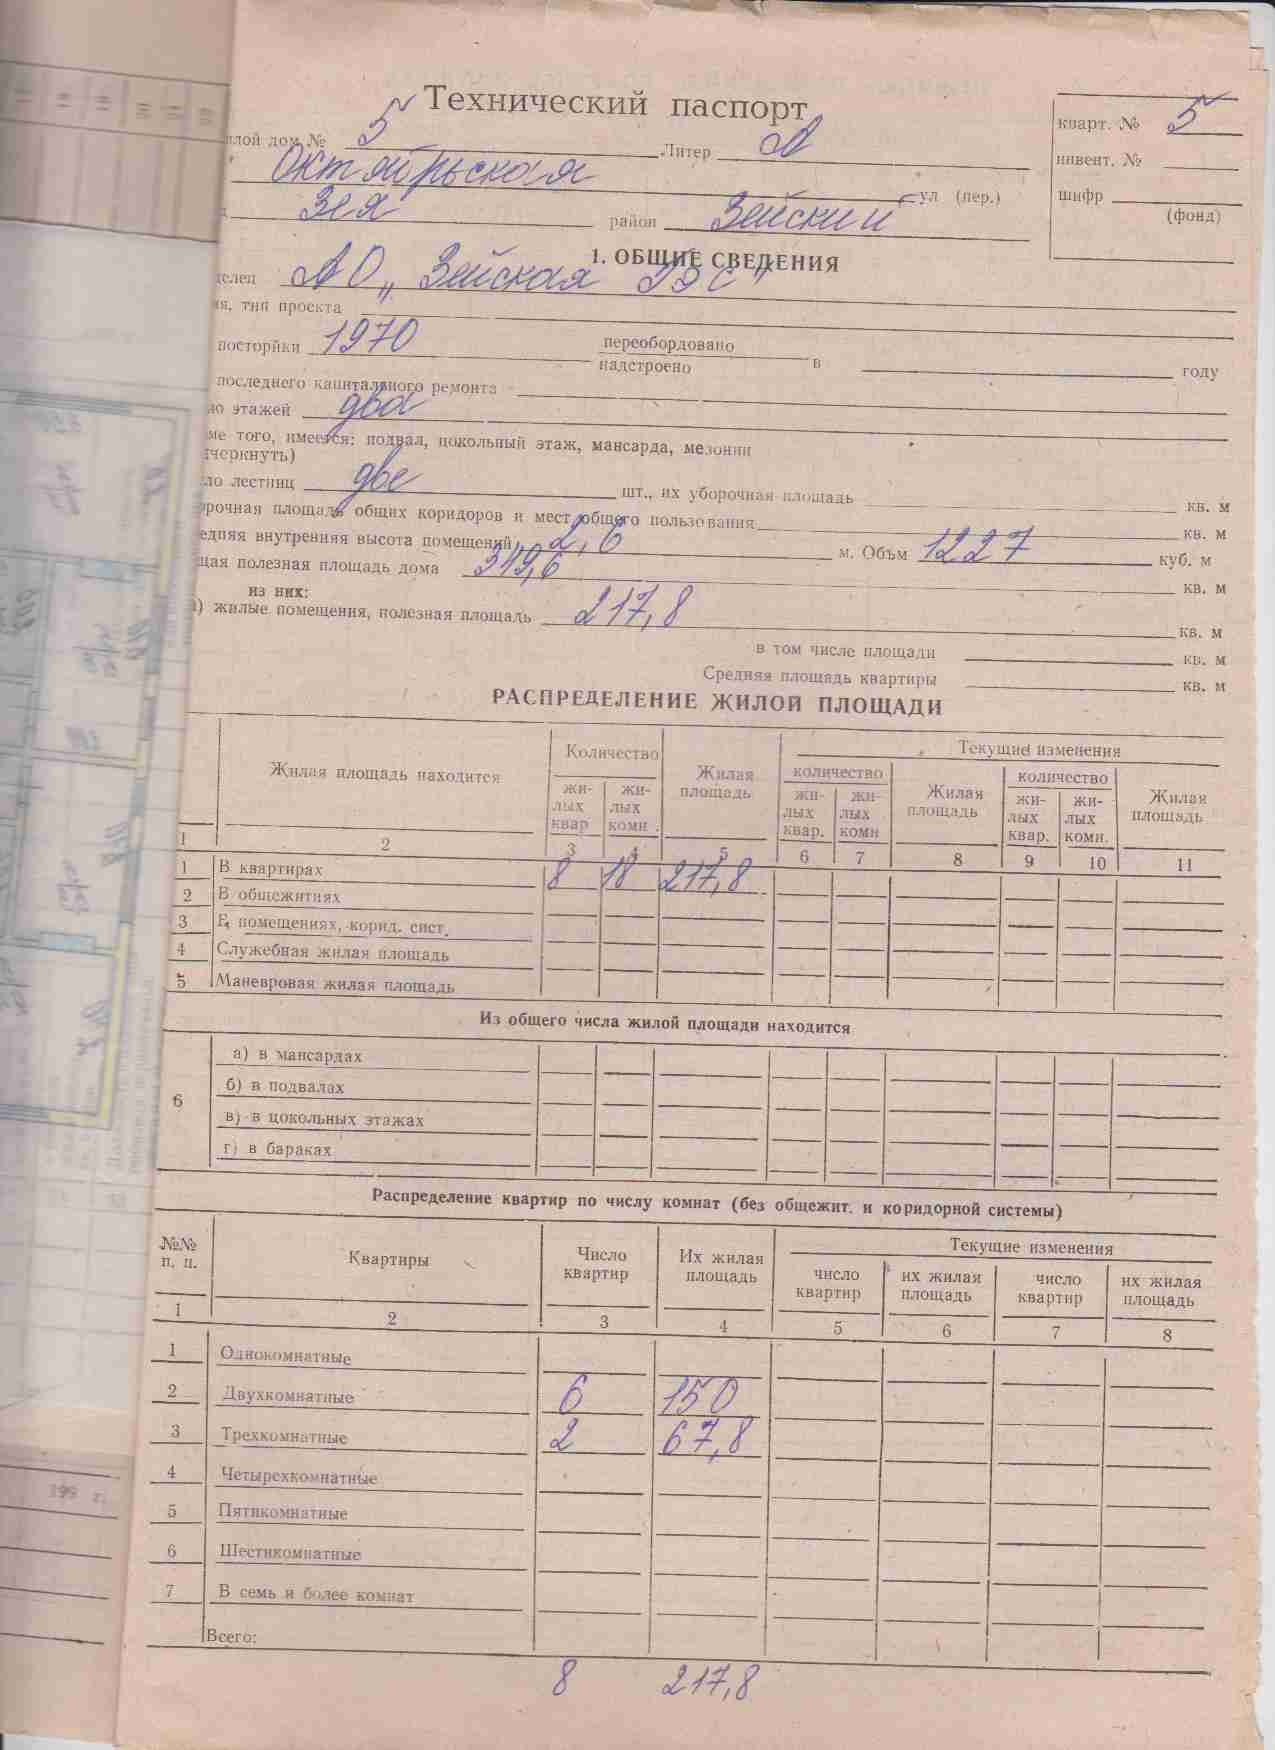 Технический паспорт
илой дом № 5 Литер А
Октябрьская ул (пер.)
Зея район Зейский
кварт. № 5
инвент. №
шифр
(фонд)
1. ОБЩИЕ СВЕДЕНИЯ
делец АО „Зейская ГЭС"
ия, тип проекта
посторйки 1970 переобордовано
надстроено в году
последнего капитального ремонта
ло этажей два
ме того, имеется: подвал, цокольный этаж, мансарда, мезонин
дчеркнуть)
ло лестниц две шт., их уборочная площадь кв. м
орочная площадь общих коридоров и мест общего пользования кв. м
едняя внутренняя высота помещений 2,6 м. Объм 1227 куб. м
щая полезная площадь дома 349,6 кв. м
из них:
) жилые помещения, полезная площадь 217,8 кв. м
в том числе площади кв. м
Средняя площадь квартиры кв. м
РАСПРЕДЕЛЕНИЕ ЖИЛОЙ ПЛОЩАДИ
Жилая площадь находится
Количество
жи-лых квар
жи-лых комн.
Жилая площадь
Текущие изменения
количество
жи-лых квар.
жи-лых комн
Жилая площадь
количество
жи-лых квар.
жи-лых комн.
Жилая площадь
1 2 3 4 5 6 7 8 9 10 11
1 В квартирах 8 18 217,8
2 В общежитиях
3 В помещениях, корид. сист.
4 Служебная жилая площадь
5 Маневровая жилая площадь
Из общего числа жилой площади находится
6
а) в мансардах
б) в подвалах
в) в цокольных этажах
г) в бараках
Распределение квартир по числу комнат (без общежит. и коридорной системы)
№№ п. п.
Квартиры
Число квартир
Их жилая площадь
Текущие изменения
число квартир
их жилая площадь
число квартир
их жилая площадь
1 2 3 4 5 6 7 8
1 Однокомнатные
2 Двухкомнатные 6 150
3 Трехкомнатные 2 67,8
4 Четырехкомнатные
5 Пятикомнатные
6 Шестикомнатные
7 В семь и более комнат
Всего:
8 217,8
199 г.